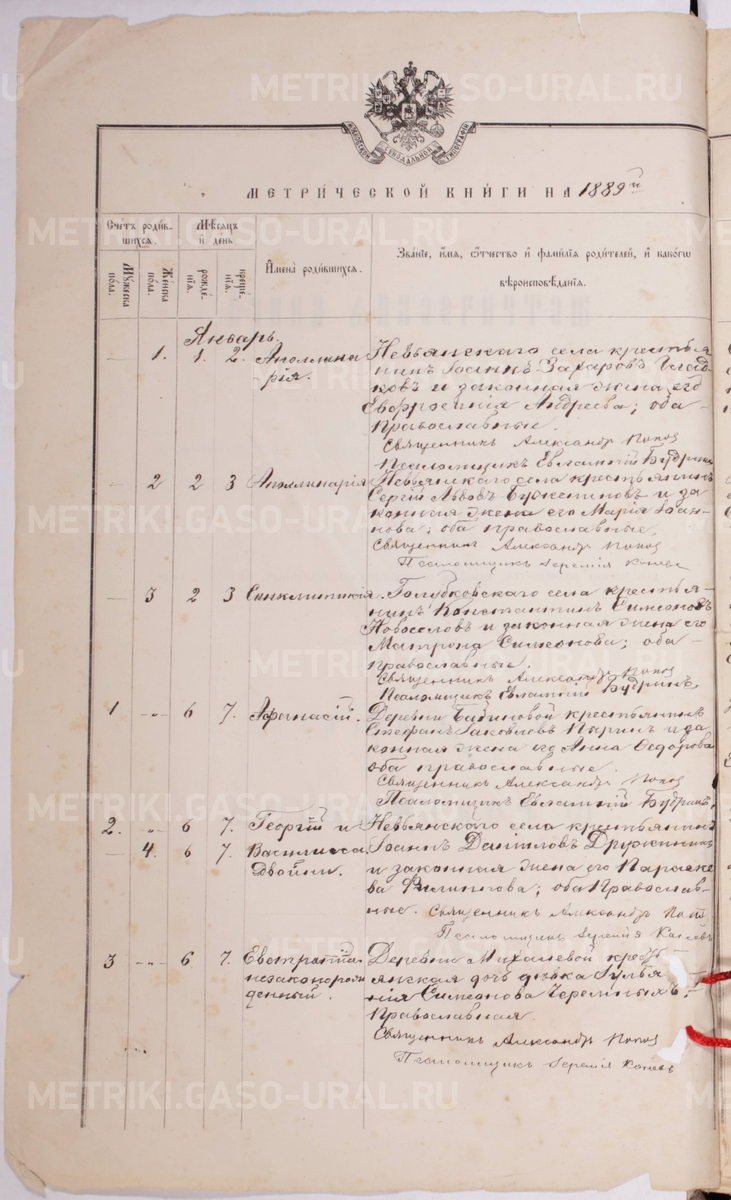 МОСКОВСКОЙ СѴНОДАЛЬНОЙ ТИПОГРАФІИ
МЕТРИЧЕСКОЙ КНИГИ НА 1889й
Счетъ родив-
шихся.
Мѣсяцъ
и день.
Мужеска
пола.
Женска
пола.
рожде-
нія.
креще-
нія.
Имена родившихся.
Званіе, имя, отчество и фамилія родителей, и какого
вѣроисповѣданія.
Январь.
— 1. 1. 2. Аполлина
рія.
Невьянскаго села крестья
нинъ Іоаннъ Захаровъ
ковъ и законная жена его
Евфросинія Андреева; оба
Православные.
Священникъ Александръ Поповъ
Псаломщикъ Евлампій Будринъ
— 2 2 3 Аполлинарія
Невьянскаго села крестьянинъ
Сергій Львовъ и за
конная жена его Марія Іоан-
нова; оба православные.
Священникъ Александръ Поповъ
Псаломщикъ Іеремія
— 3 2 3 Синклитикія.
Голубковскаго села крестья-
нинъ Константинъ Симеоновъ
Новоселовъ и законная жена его
Матрона Симеонова; оба
православные.
Священникъ Александръ Поповъ
Псаломщикъ Евлампій Будринъ
1 -„- 6 7. Афанасій.
Деревни крестьянинъ
Стефанъ Іаковлевъ и за
конная жена его Анна Ѳедорова
оба православные.
Священникъ Александръ Поповъ
Псаломщикъ Евлампій Будринъ.
2. „ 6 7. Георгій и
— 4. 6 7. Василисса
двойни.
Невьянскаго села крестьянинъ
Іоаннъ Даниловъ Дружининъ
и законная жена его Параске
ва Филиппова; оба Православ-
ные. Священникъ Александръ Поповъ
Псаломщикъ Іеремія
3 -„- 6 7. Евстратій
незаконорож
денный.
Деревни Михалевой кресть
янская дочь дѣвка Іулья
нія Симеонова Черемныхъ;
Православная.
Священникъ Александръ Поповъ
Псаломщикъ Іеремія
METRIKI.GASO-URAL.RU